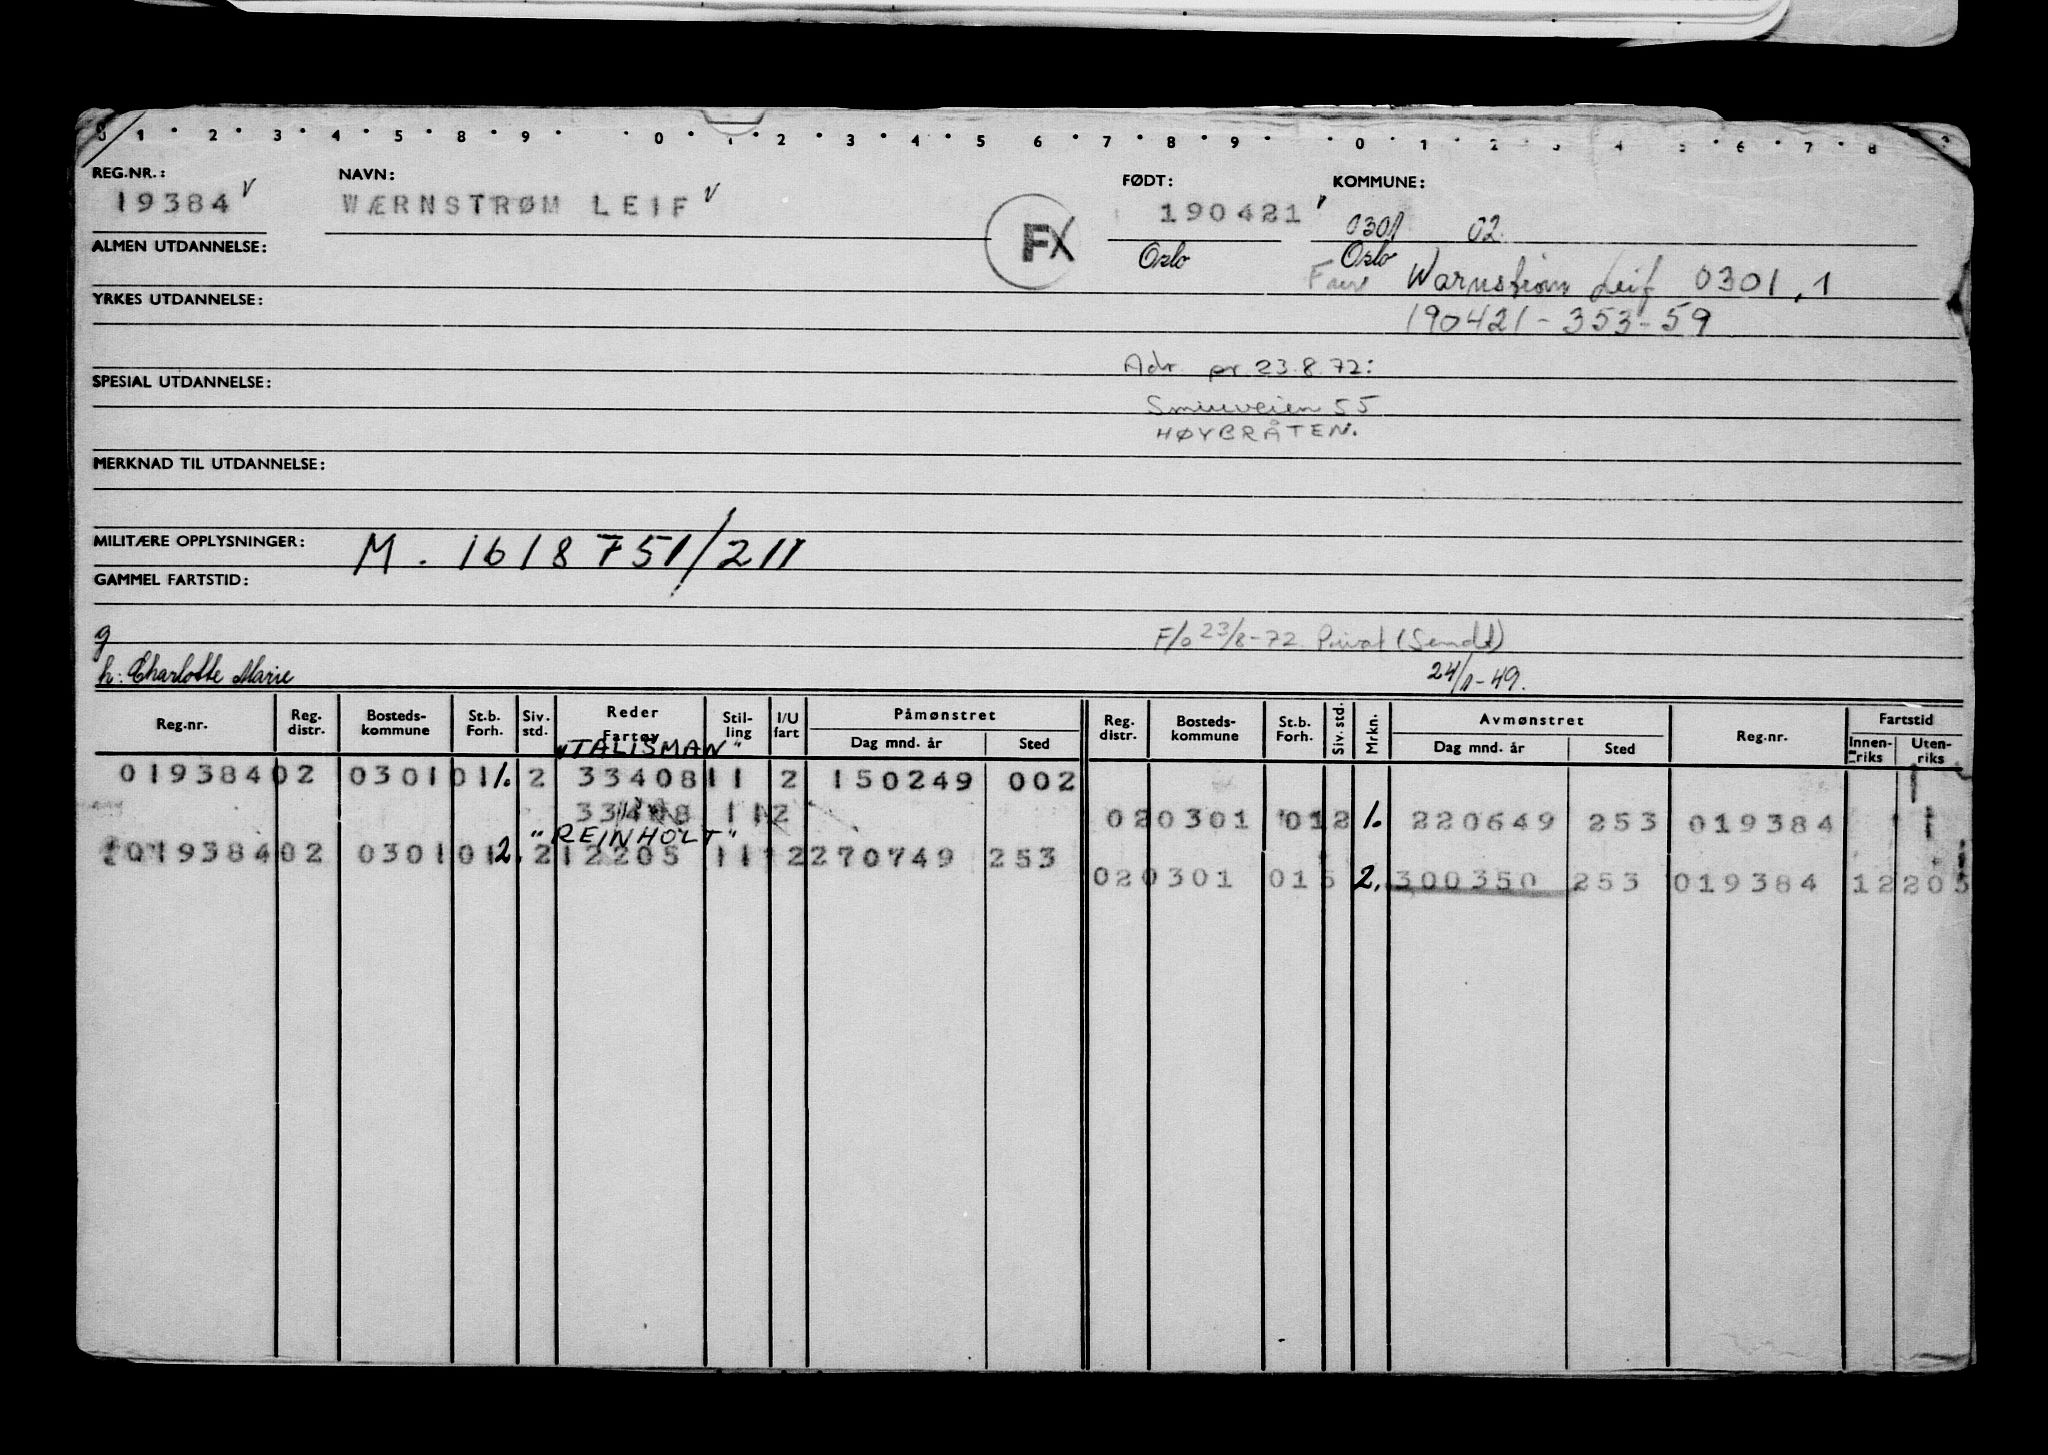 0 1 2 3 4 5 8 9 0 1 2 3 4 5 6 7 8 9 0 1 2 3 4 5 6 7 8
REG.NR.: NAVN: FØDT: KOMMUNE:
19384 V WÆRNSTRØM LEIF V FX 190421 0301 02
ALMEN UTDANNELSE: Oslo Oslo
Leif 0301.1
YRKES UTDANNELSE:
190421-353-59
Adr pr 23.8.72:
SPESIAL UTDANNELSE:
55
HØYBRÅTEN.
MERKNAD TIL UTDANNELSE:
MILITÆRE OPPLYSNINGER: M. 1618751/211
GAMMEL FARTSTID:
g F/o 23/8-72 Privat (Sendt)
h: Charlotte Marie 24/1-49.
Reg.nr. Reg. distr. Bosteds-kommune St.b. Forh. Siv. std. Reder Fartøy Stil-ling I/U fart Påmønstret Dag mnd. år Sted Reg. distr. Bosteds-kommune St.b. Forh. Siv. std. Mrkn. Avmønstret Dag mnd. år Sted Reg.nr. Fartstid Innen-riks Uten-riks
"TALISMAN"
019384 02 0301 01 1. 2 33408 11 2 150249 002
33408 11 2 02 0301 01 2 1. 220649 253 019384
"REINHOLT"
019384 02 0301 01 2. 2 12205 11 2 270749 253
02 0301 01 5 2. 300350 253 019384 12205